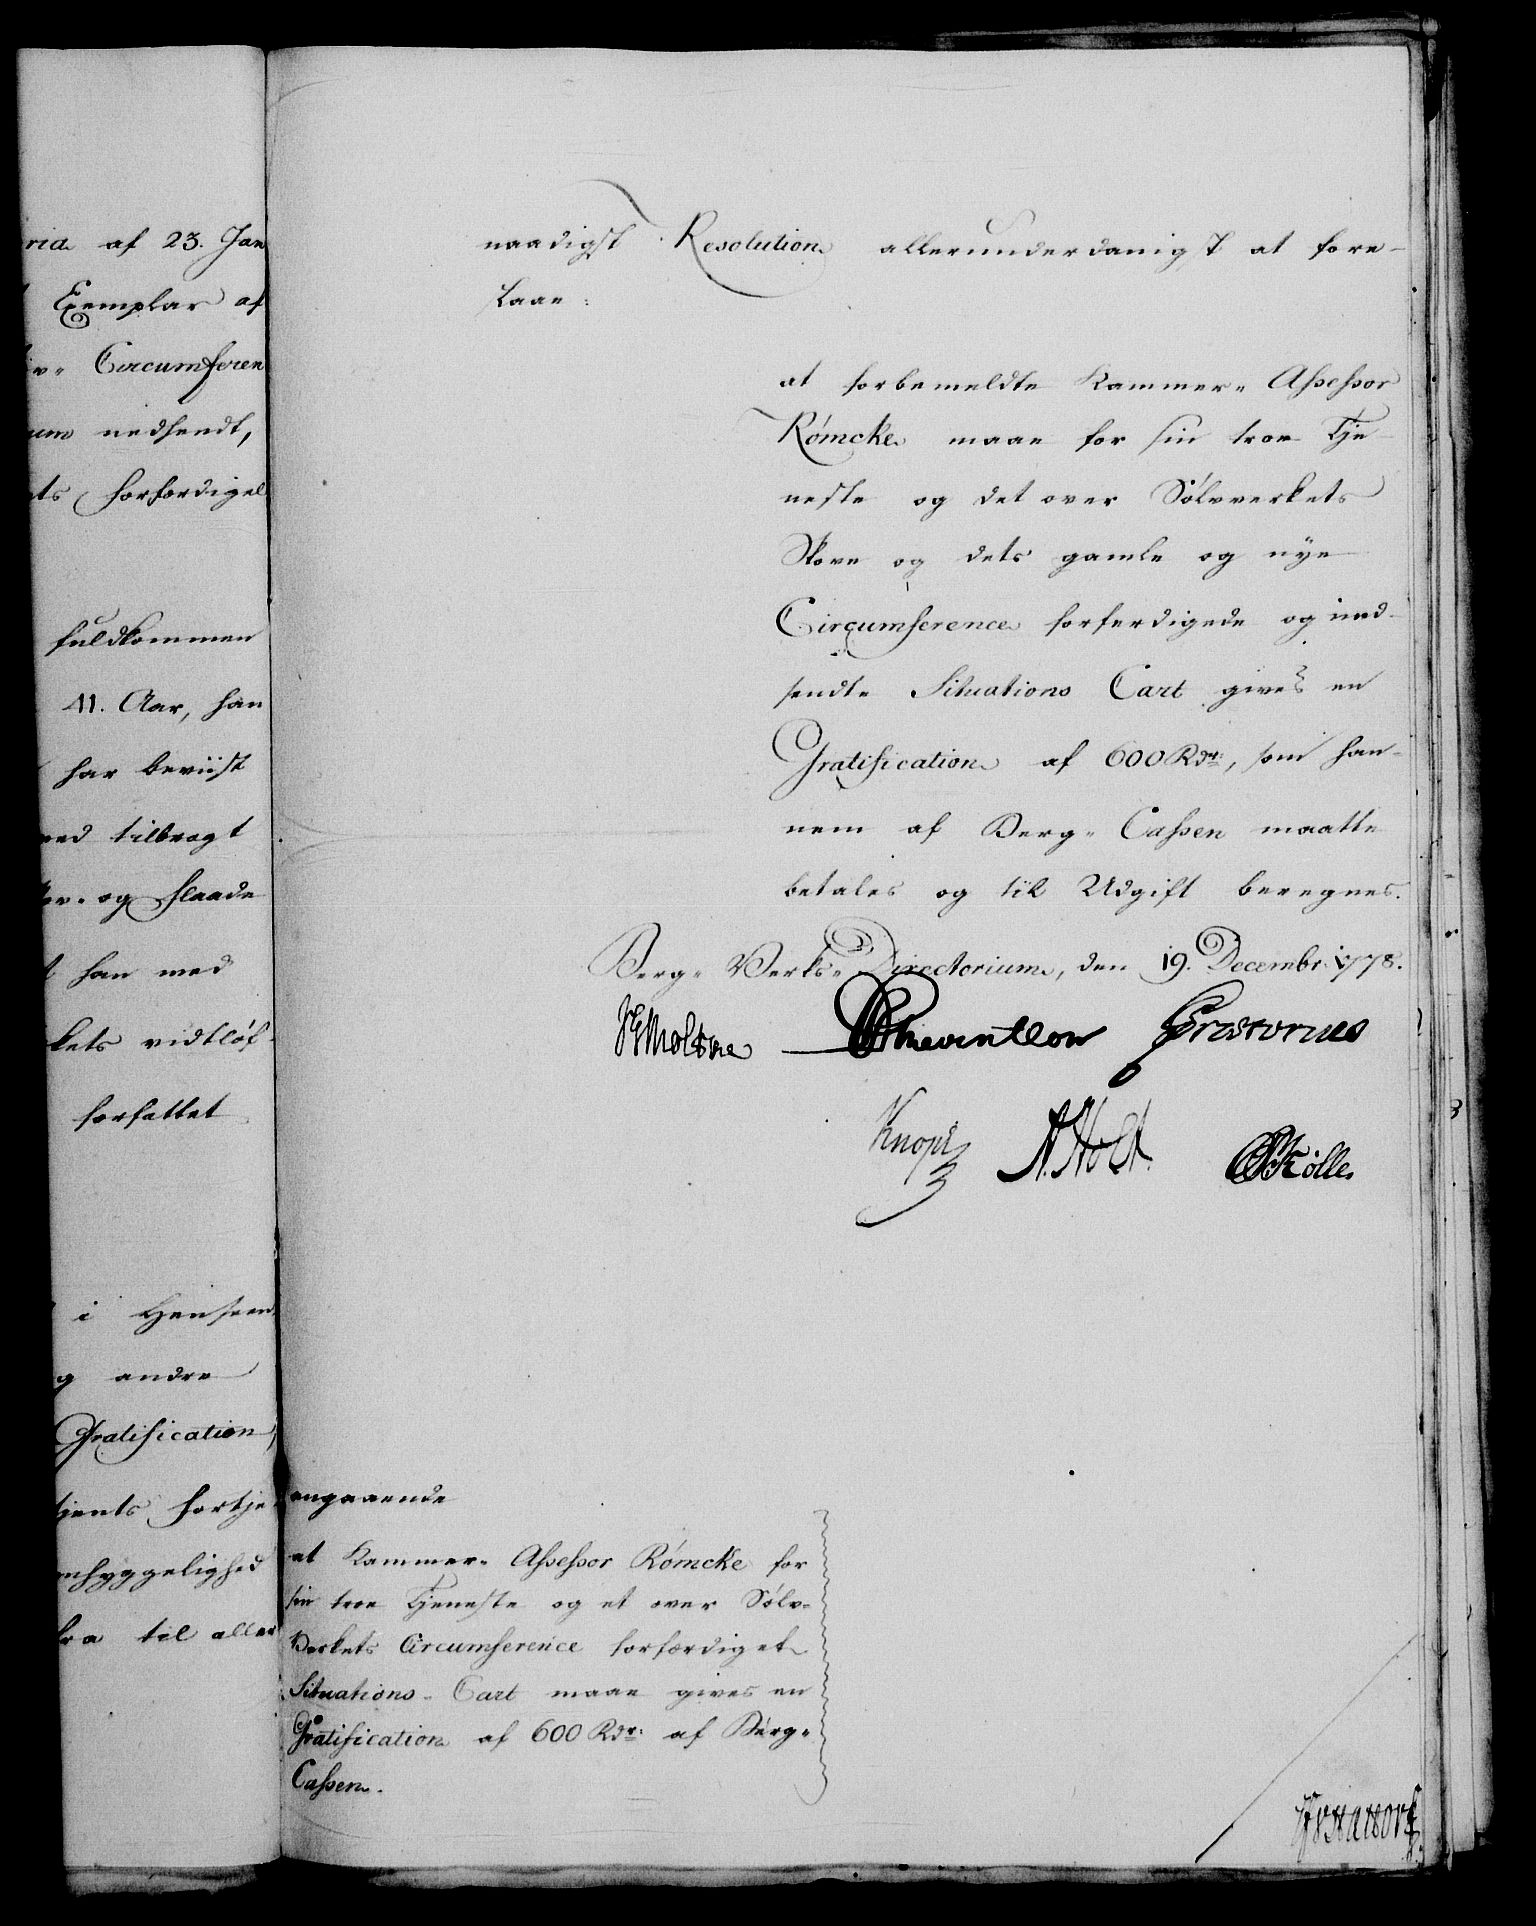 ria af 23. Jan
Exemplar af
Circumferen
um nedsendt,
ts forfærdigel
fuldkommen
11. Aar, han
har beviist
med tilbragt
og flaade
han med
kets vidtløf-
forfattet
i Henseen
og andre
Gratification,
tjents fortje
omhyggelighed
fra til aller
naadigst Resolution allerunderdanigst at fore-
slaae:
at forbemeldte Kammer- Assessor
Rømcke maae for sin troe Tje-
neste og det over Sølvverkets
Skove og dets gamle og nye
Circumference forferdigede og ind-
sendte Situations Cart gives en
Gratification af 600 Rdr:, som han-
nem af Berg- Cassen maatte
betales og til Udgift beregnes.
Berg- Verks- Directorium, den 19. Decembr: 1778.
JGMoltke Rheventlow Prætorius
Knoph A. Holt. CSKølle
angaaende
at Kammer- Assessor Rømcke for
sin troe Tjeneste og et over Sølv-
Verkets Circumference forfærdiget
Situations- Cart maae gives en
Gratification af 600 Rdr: af Berg-
Cassen.